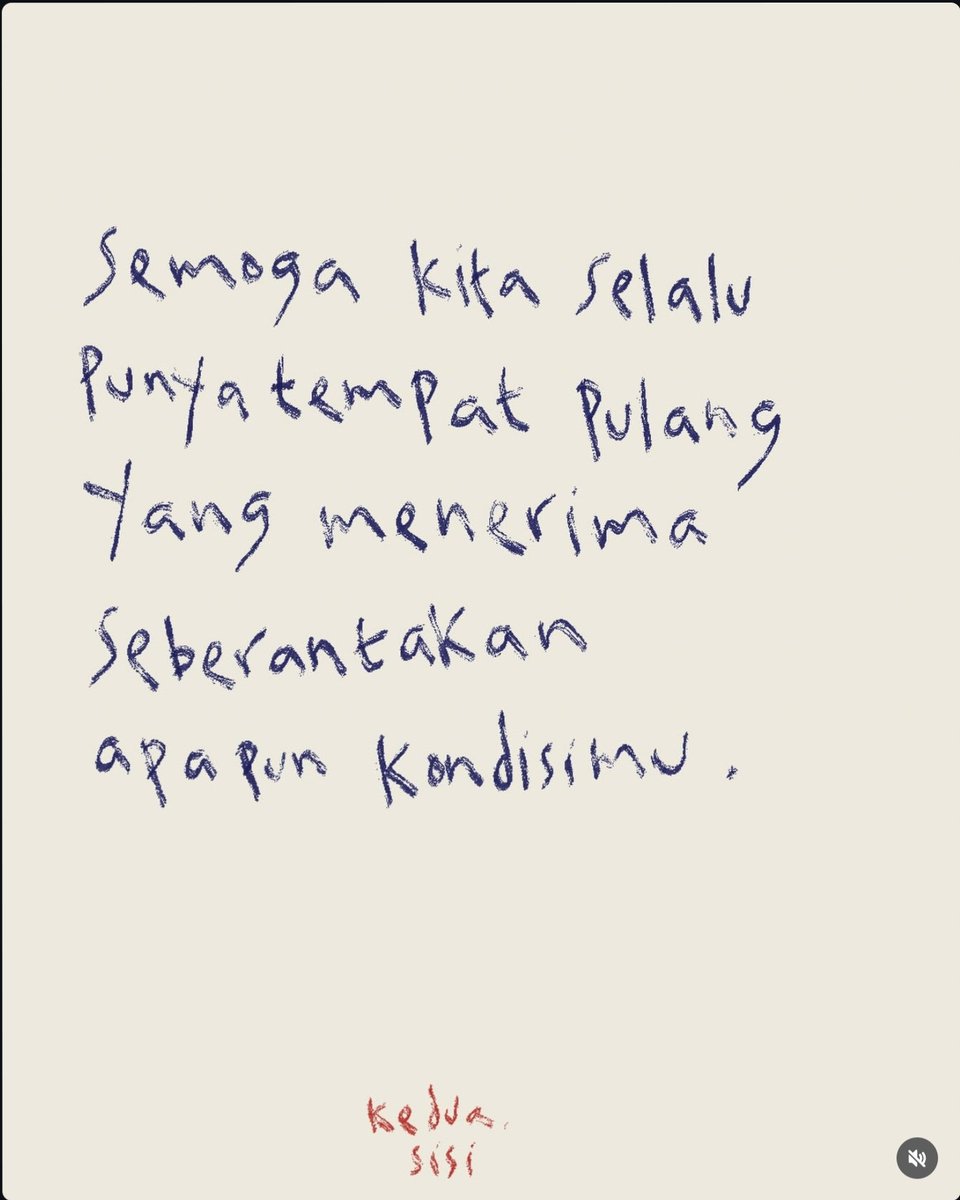 Semoga kita selalu
Punya tempat pulang
Yang menerima
Seberantakan
apapun kondisimu.
kedua.
sisi